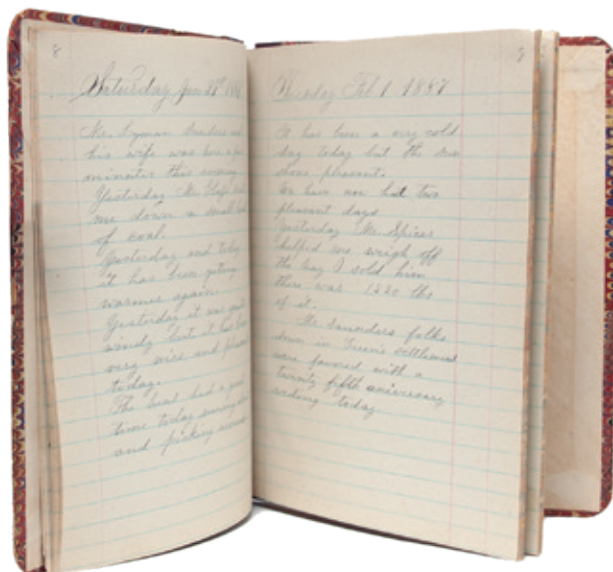 8
Saturday Jan
Mr. Lyman Saunders and
his wife was here a few
minutes this evening
Yesterday Mr.
me down a small load
of coal.
Yesterday and today
it has been geting
warmer again
Yesterday it was quite
windy but it has been
very nice and pleasant
today.
The boat had a good
time today
and picking
8
Tuesday Feb 1 1887
It has been a very cold
day today but the sun
shone pleasant.
We have now had two
pleasant days
Yesterday Mr. Spicer
helped me weigh off
the hay I sold him
there was 1220 lbs
of it.
Mr. Saunders folks
down in Green's settlement
were favored with a
twenty fifth aniversary
weding today